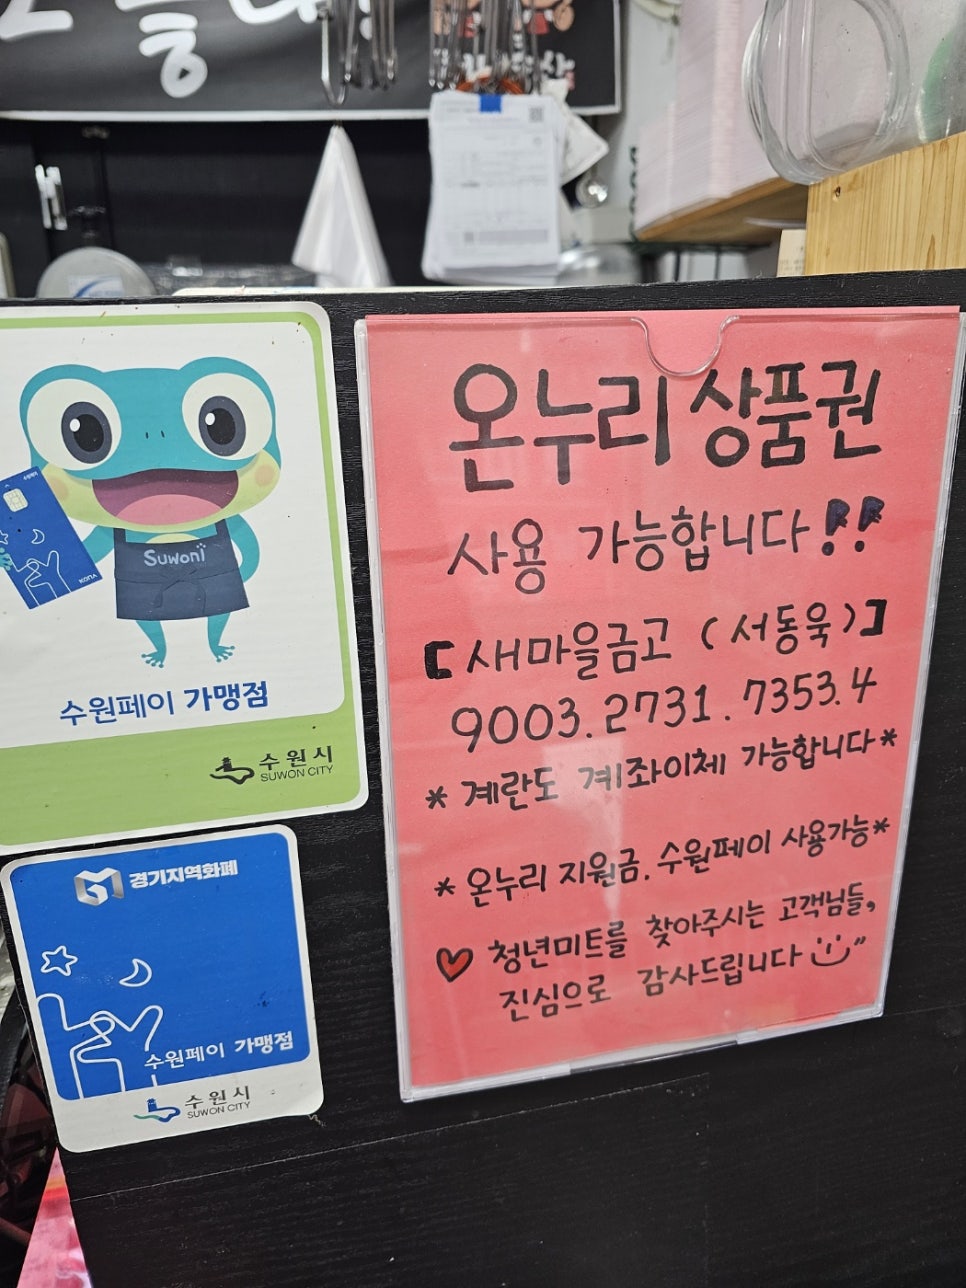 Suwoni
수원페이
KONA
수원페이 가맹점
수원시
SUWON CITY
경기지역화폐
수원페이 가맹점
수원시
SUWON CITY
온누리 상품권
사용 가능합니다!!
[새마을금고 (서동욱)]
9003.2731.7353.4
* 계란도 계좌이체 가능합니다 *
* 온누리 지원금, 수원페이 사용가능 *
♡ 청년미트를 찾아주시는 고객님들,
진심으로 감사드립니다